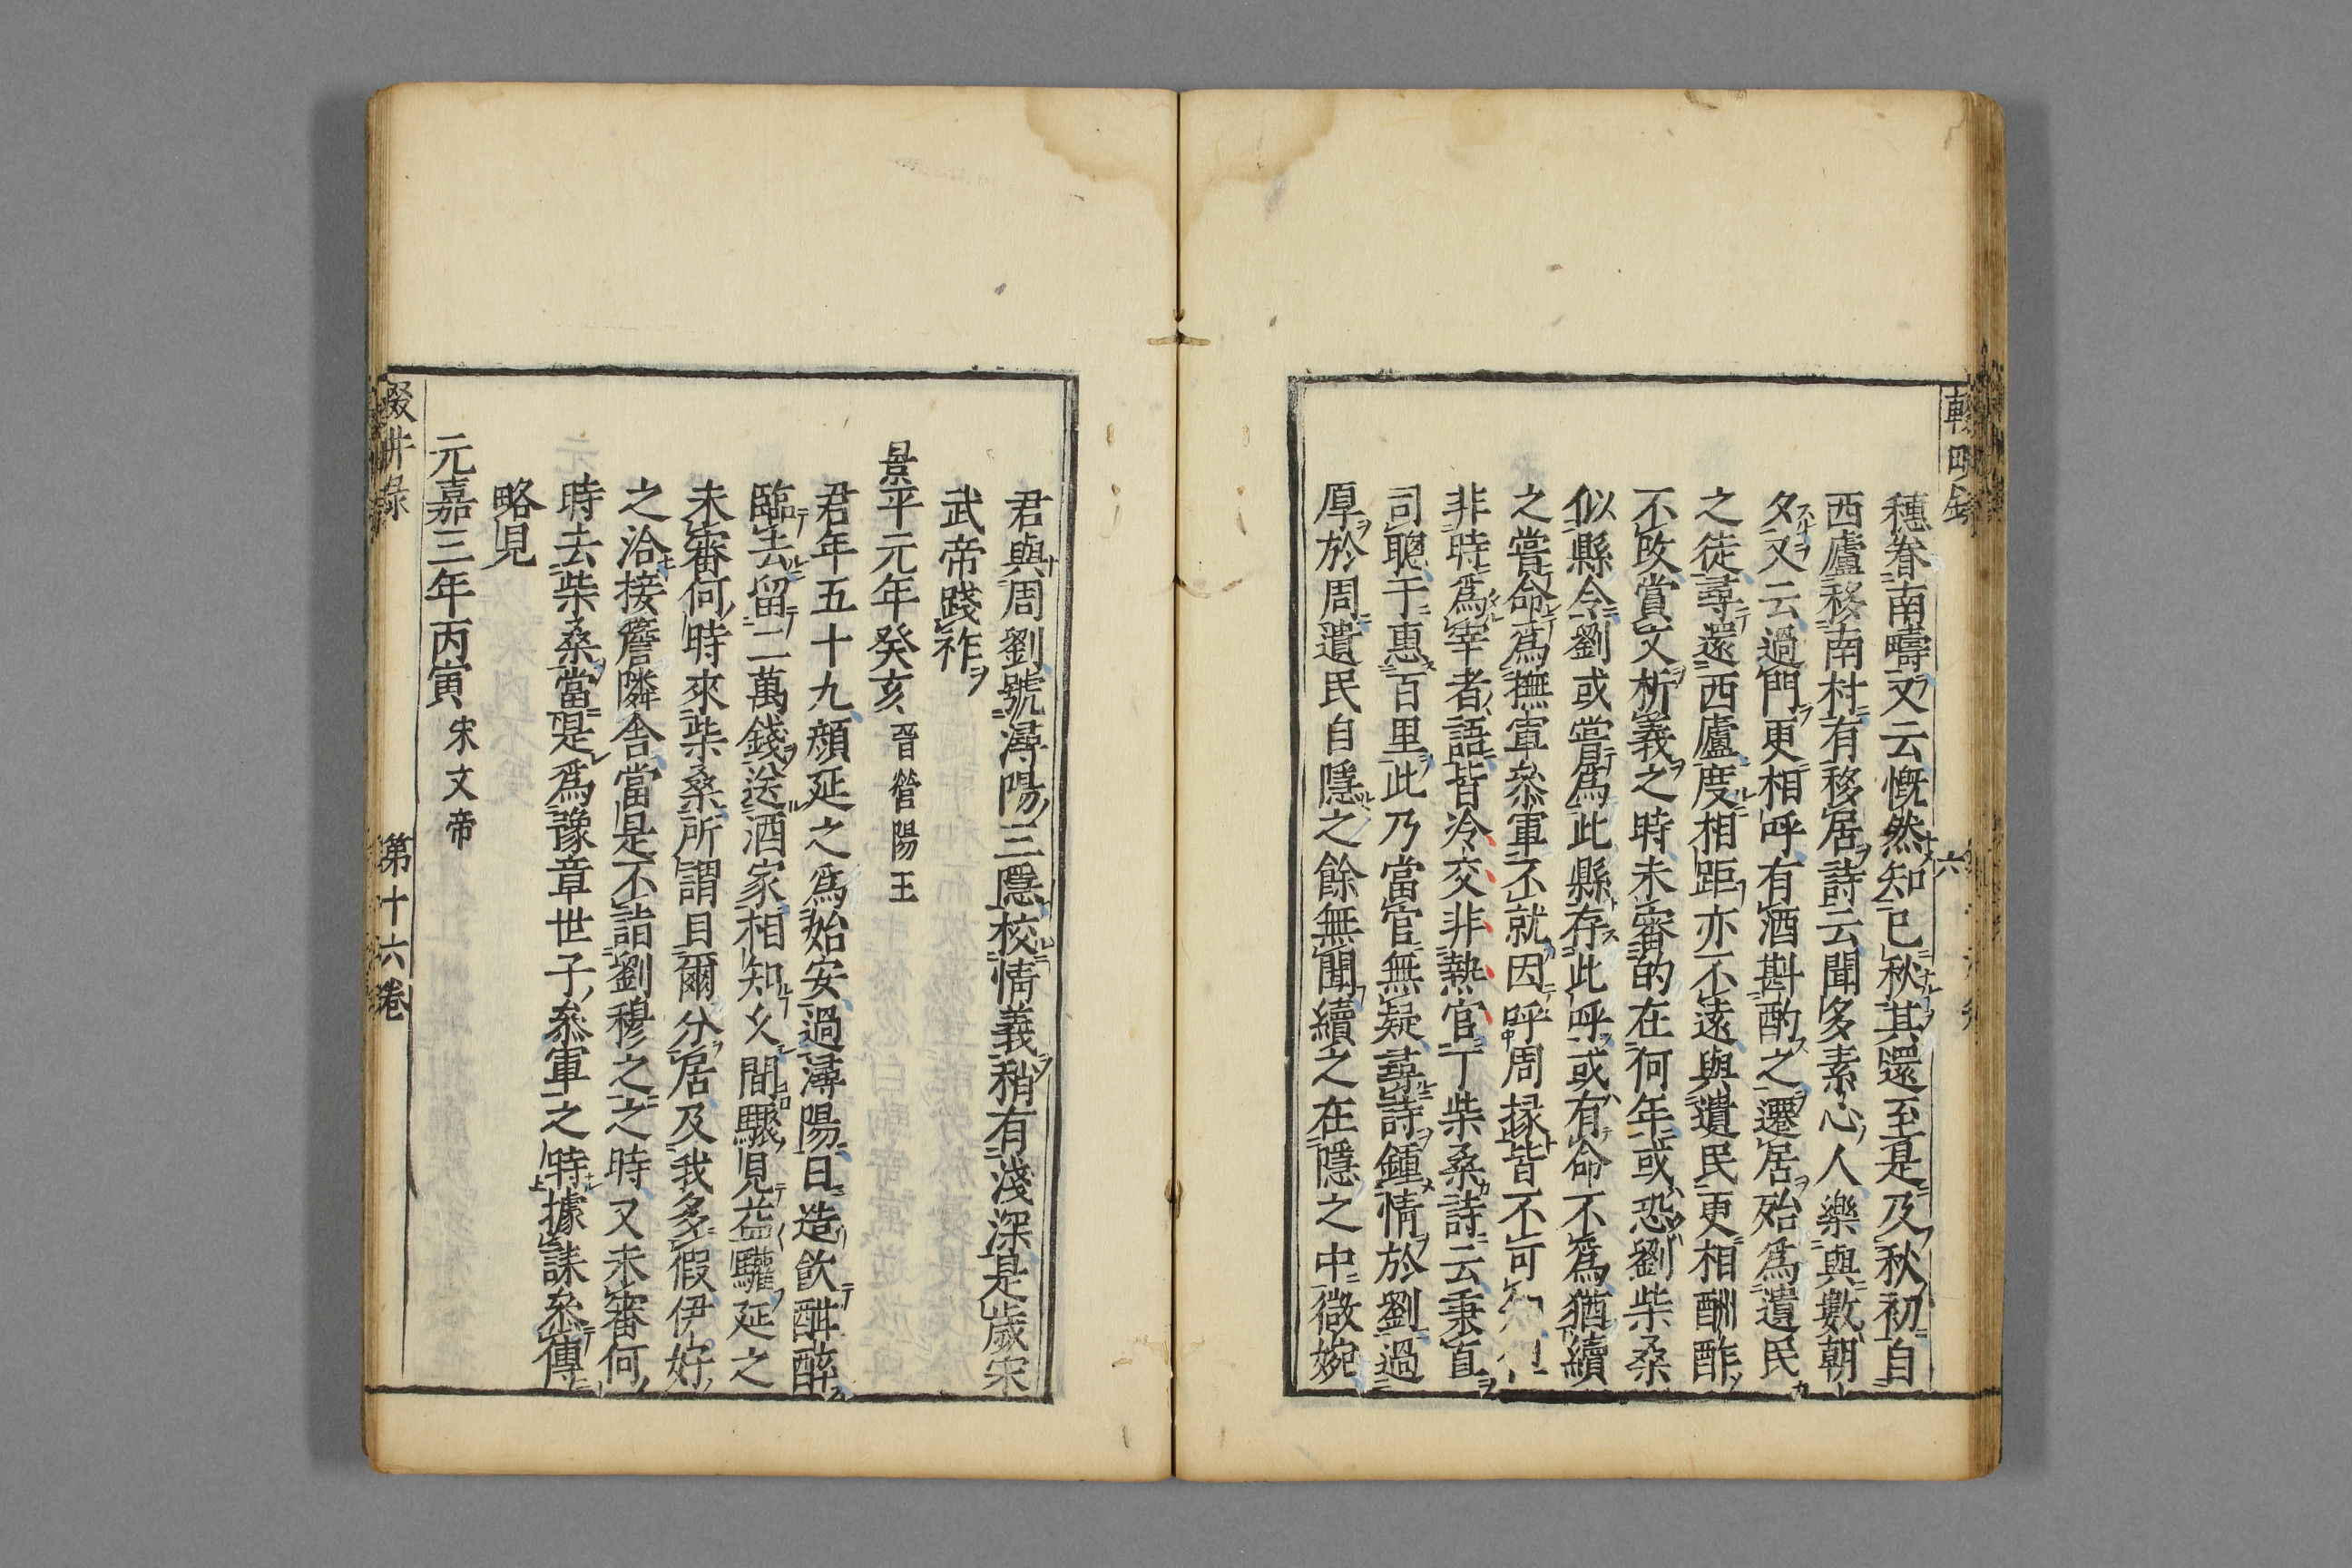 輟畊録
穗眷南疇又云慨然知已秋其還至是及秋初自
西廬移南村有移居詩云聞多素心人樂與數朝
夕又云過門更相呼有酒斟酌之遷居殆爲遺民
之徒尋還西廬度相距亦不遠與遺民更相酬酢
不改賞文析義之時未審的在何年或恐劉柴桑
似縣令劉或嘗爲此縣存此呼或有命不爲猶續
之嘗命爲撫軍叅軍不就因呼周掾皆不可知
非時爲宰者語皆冷交非熱官丁柴桑詩云秉直
司聰于惠百里此乃當官無疑尋詩鍾情於劉過
厚於周遺民自隱之餘無聞續之在隱之中微婉
君與周劉號潯陽三隱校情義稍有淺深是歲宋
武帝踐祚
景平元年癸亥晉營陽王
君年五十九顔延之爲始安過潯陽日造飮酣醉
臨去留二萬錢送酒家相知久間驟見益驩延之
未審何時來柴桑所謂自爾分居及我多假伊好
之洽接簷隣舍當是不詣劉穆之之時又未審何
時去柴桑當是爲豫章世子叅軍之時據誄叅傳
略見
元嘉三年丙寅宋文帝
輟畊録 第十六卷